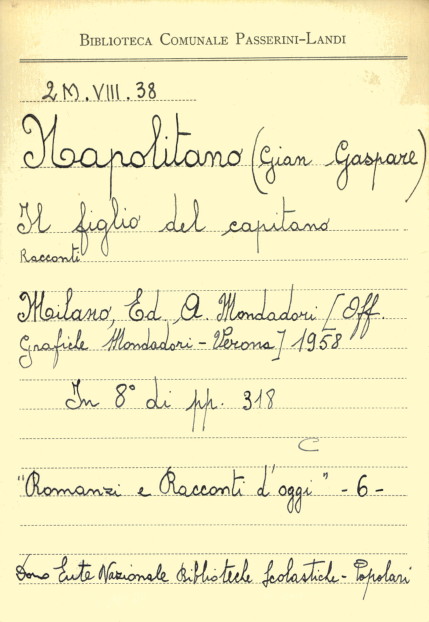 BIBLIOTECA COMUNALE PASSERINI-LANDI
2 M. VIII. 38
Napolitano (Gian Gaspare)
Il figlio del capitano
Racconti
Milano, Ed. A. Mondadori [Off.
Grafiche Mondadori - Verona] 1958
In 8° di pp. 318
C
"Romanzi e Racconti d'oggi" - 6 -
Dono Ente Nazionale Biblioteche Scolastiche - Popolari